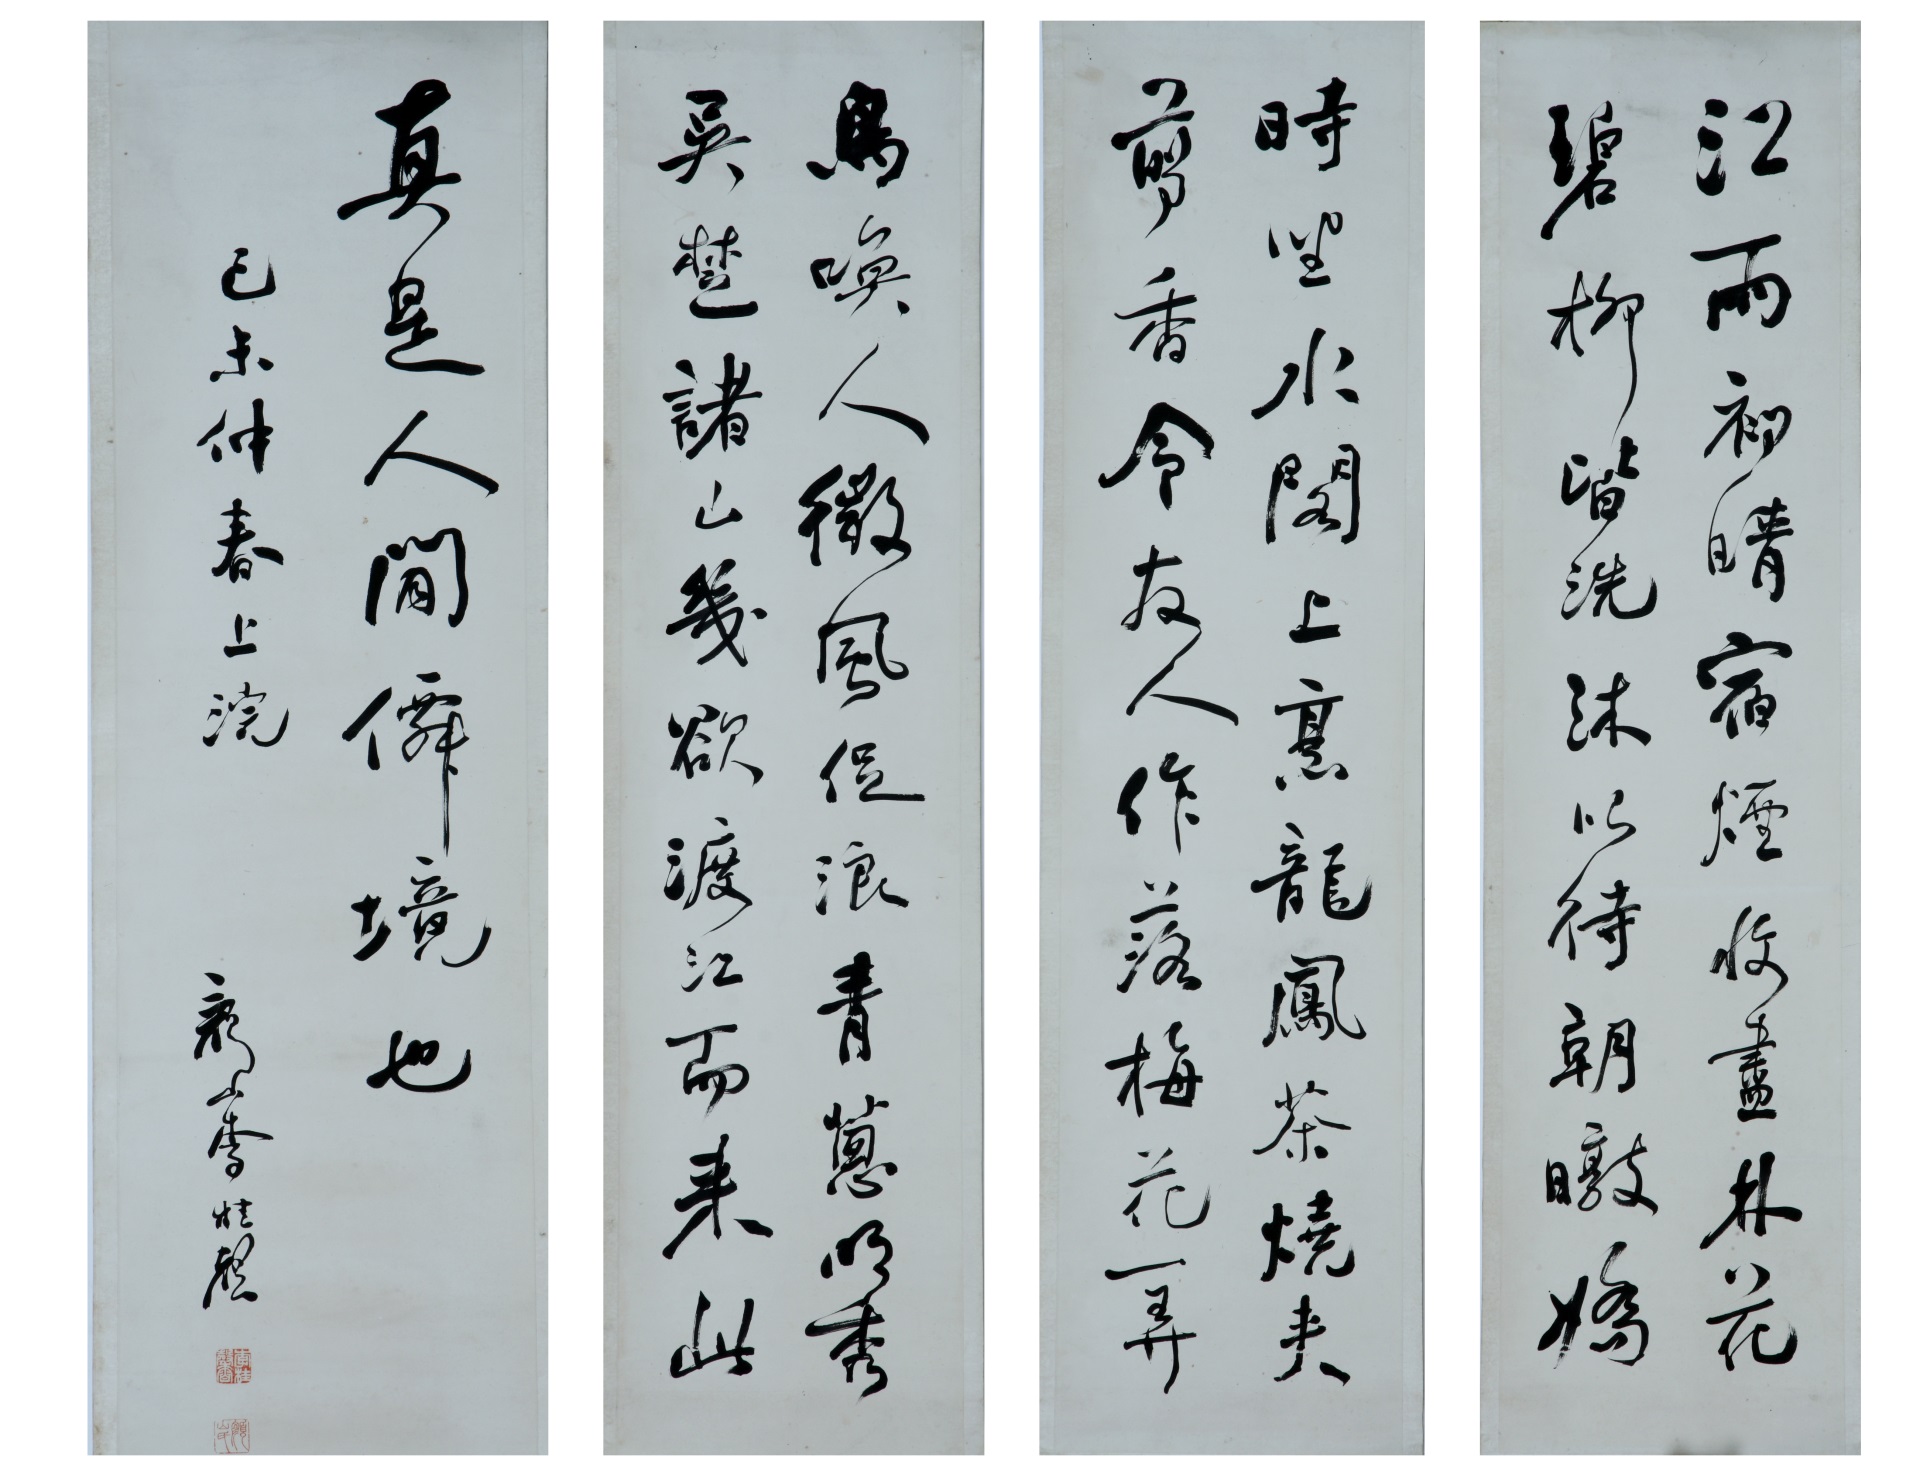 江雨初晴宿煙收盡林花
碧柳皆洗沐以待朝暾嬌
時坐水閣上烹龍鳳茶燒夾
剪香令友人作落梅花一弄
鳥喚人微風促浪青蔥明秀
吳楚諸山幾欲渡江而來此
真是人間僊境也
己未仲春上浣
山李桂馨